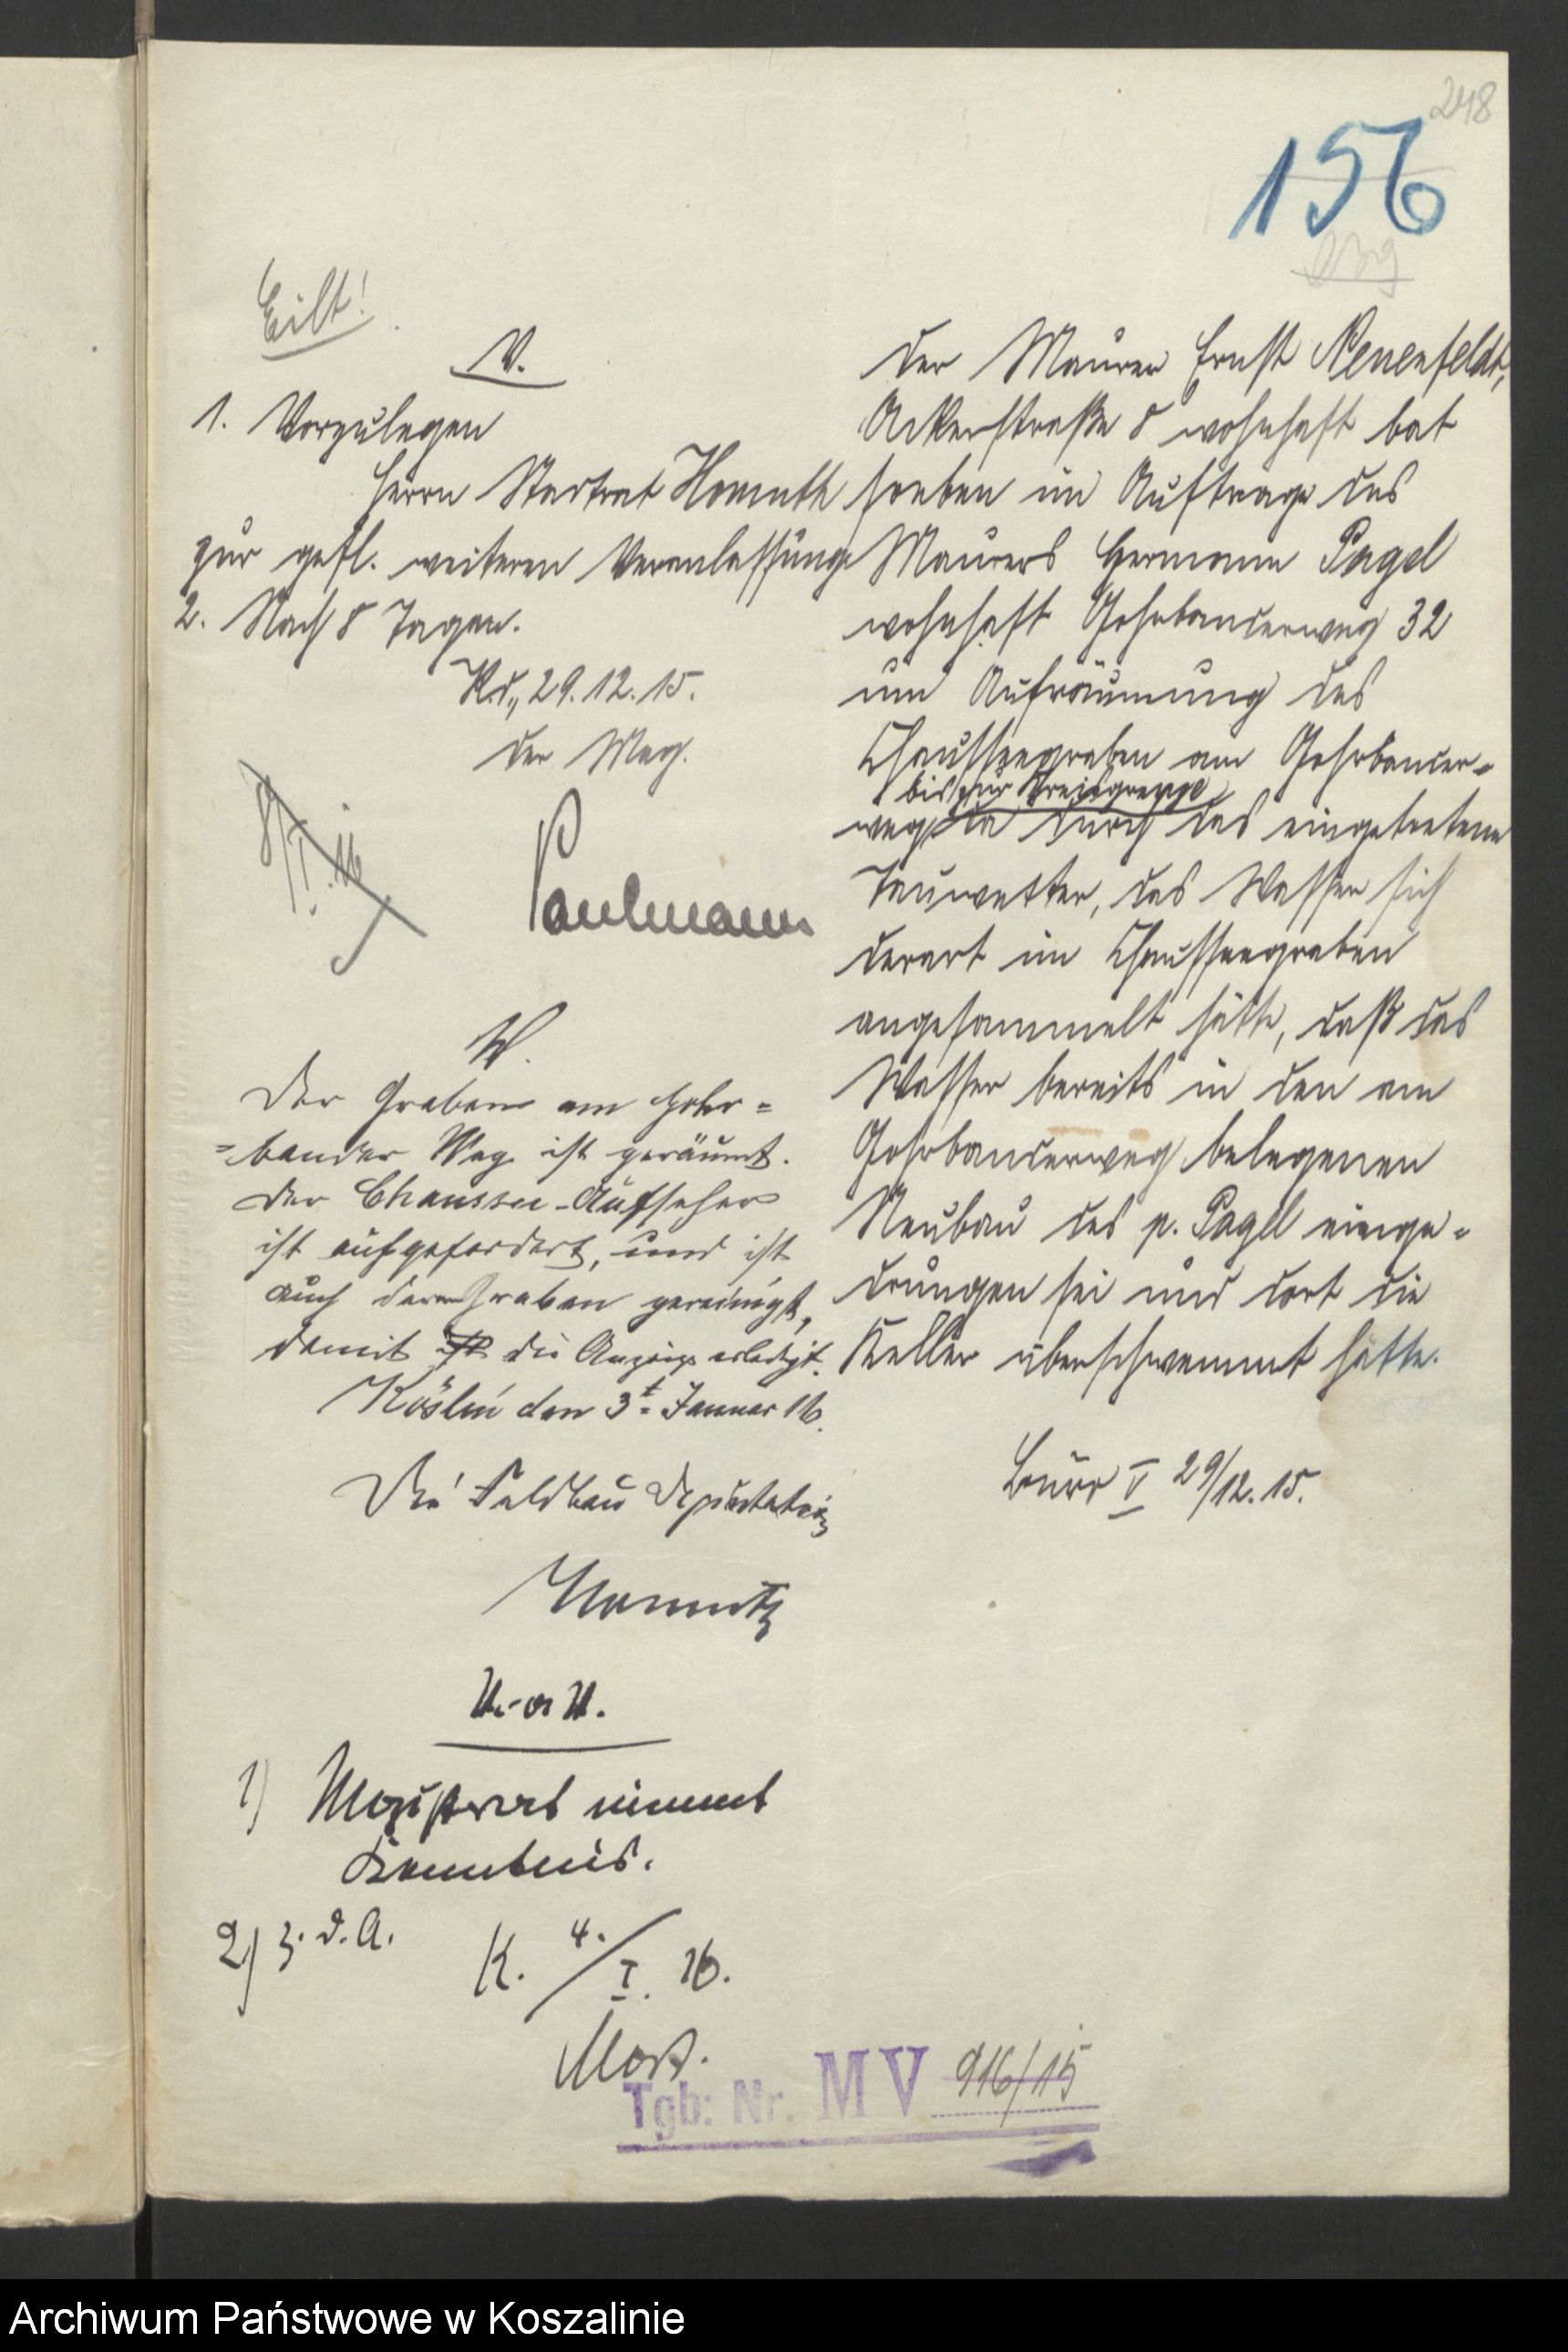 248
156
Eilt!
V.
1. Vorzulegen
Herrn Stadtrat Homuth
zur gefl. weiteren Veranlassung
2. Nach 8 Tagen.
K.d., 29.12.15.
Der Mag.
8/I.16
Paulmann
Der Maurer Ernst Neuenfeldt,
Ackerstraße 8 wohnhaft bat
soeben im Auftrage des
Maurers Hermann Pagel
wohnhaft Gohrbanderweg 32
um Aufräumung des
Chausseegraben am Gohrbander-
bis zur Kreisgrenze
weg da durch das eingetretene
Tauwetter, das Wasser sich
derart im Chausseegraben
angesammelt hätte, daß das
Wasser bereits in den am
Gohrbanderweg belegenen
Neubau des p. Pagel einge-
drungen sei und dort die
Keller überschwemmt hätte.
Büro V 29/12.15.
W.
Der Graben am Gohr=
=bander Weg ist geräumt.
Der Chaussee-Aufseher
ist aufgefordert, und ist
auch der Graben gereinigt,
damit ist die Anzeige erledigt.
Köslin den 3t. Januar 16.
Die Feldbau Deputation
U. a U.
1) Magistrat nimmt
Kenntnis.
2) z. d. A.
K. 4./I. 16.
Tgb: Nr. M V 916/15
Archiwum Państwowe w Koszalinie